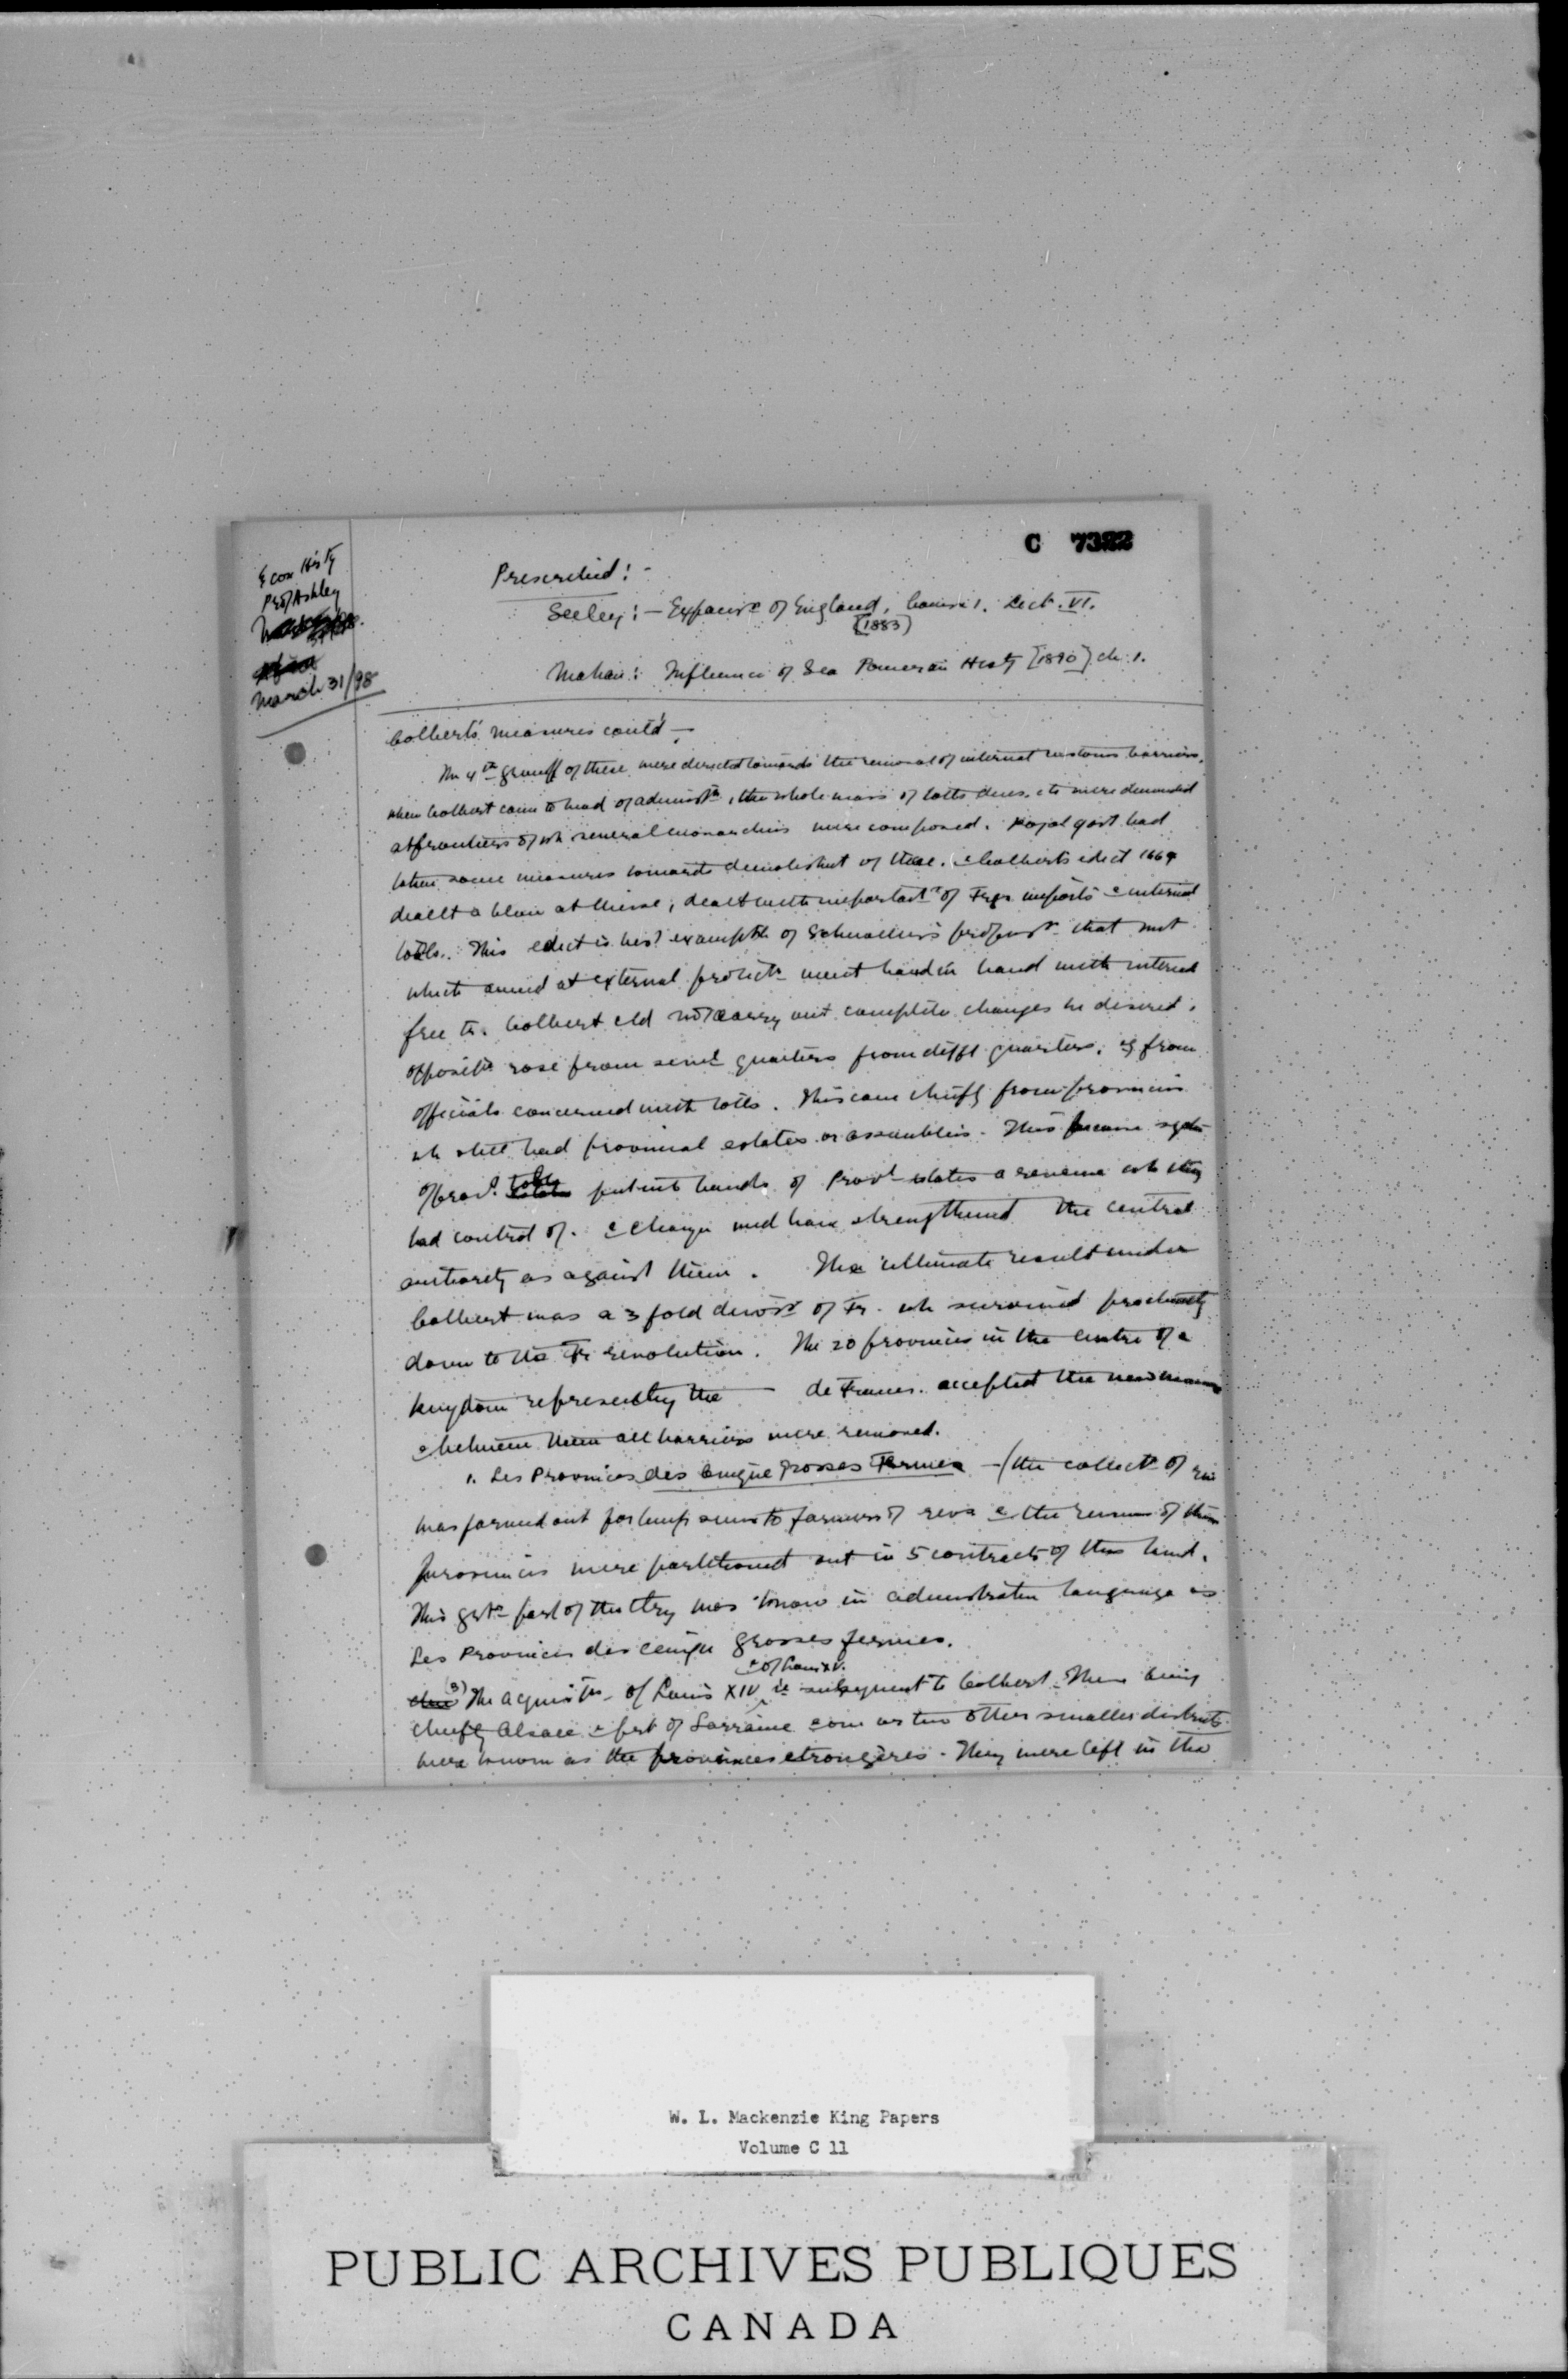 C 7322
Econ Histy
Prof Ashley
March 31/98
Prescribed! -
Seeley: - Expansn of England, Course 1. Lect. VI.
[1883]
Mahan: Influence of Sea Power on Histy [1890] ch. 1.
Colbert's measures cont'd -
The 4th group of these were directed towards the removal of internal customs barriers.
When Colbert came to head of administn, the whole mass of tolls dues, etc were demanded
at frontiers of wh several monarchies were composed. Royal govt had
taken some measures towards demolishmt of these. & Colberts edict 1664
dealt a blow at these, dealt with importantn of Frgn imports & internal
tolls. This edict is best example of Schmoller's propositn that mvt
which aimed at external protectn went hand in hand with internal
free tr. Colbert cld not carry out complete changes he desired.
Oppositn rose from sevl quarters from difft quarters, eg from
officials concerned with tolls. This came chiefly from provinces
wh still had provincial estates or assemblies. This system
of provl tolls put into hands of Provl estates a revenue wh they
had control of. & change wld have strengthened the central
authority as against them. The ultimate result under
Colbert was a 3 fold divisn of Fr. wh survived practically
down to the Fr revolution. The 20 provinces in the centre of a
kingdom representing the — de France. accepted the new
& between them all barriers were removed.
1. Les Provinces des cinque grosses Fermes - (the collectn of rev
was farmed out for lump sums to farmers of revs & the revenues of these
provinces were partitioned out in 5 contracts of this kind.
This grtr part of the ctry was known in administrative language as
Les Provinces des cinque grosses fermes.
& of Louis XV.
3) The acquisitns of Louis XIV ie subsequent to Colbert - These being
chiefly Alsace & prt of Lorraine & one or two other smaller districts
were known as the provinces etrangères. They were left in the
W. L. Mackenzie King Papers
Volume C 11
PUBLIC ARCHIVES PUBLIQUES
CANADA